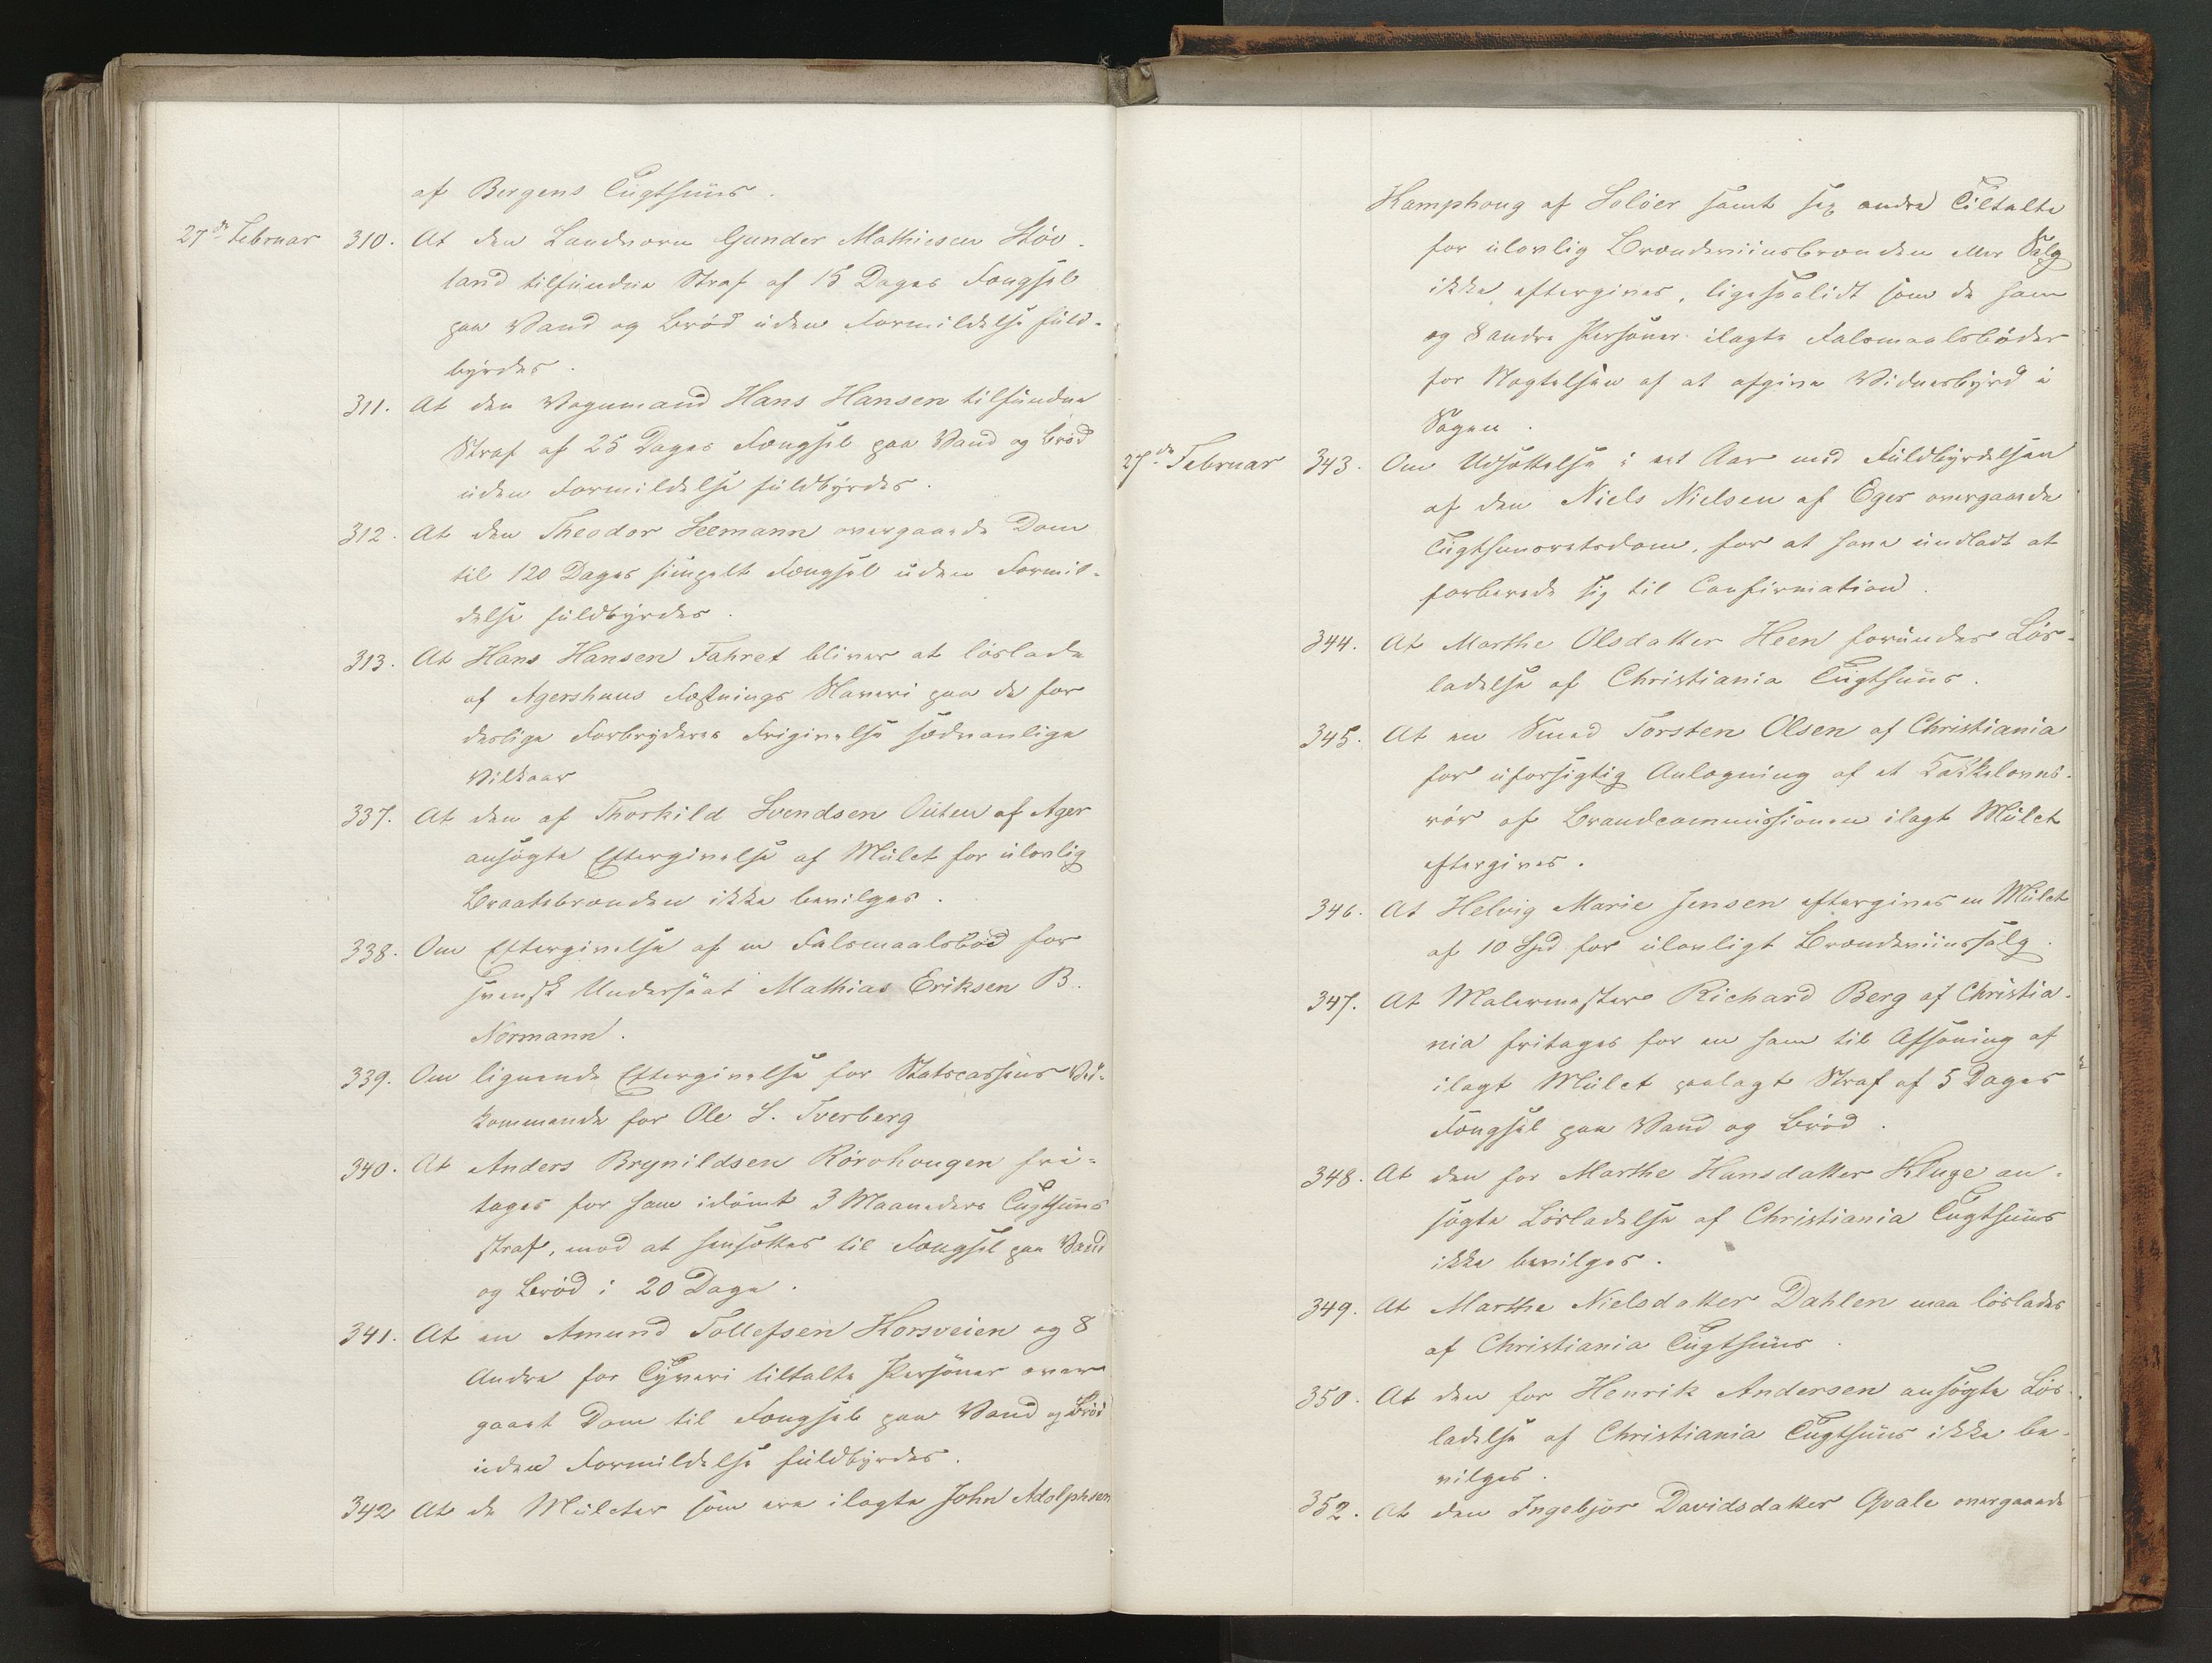 af Bergens Tugthuus.
27de Februar 310. At den Landværn Gunder Mathiesen Stöv-
land tilfundne Straf af 15 Dages Fængsel
paa Vand og Bröd uden Formildelse fuld-
byrdes.
311. At den Vognmand Hans Hansen tilfundne
Straf af 25 Dages Fængsel paa Vand og Bröd
uden Formildelse fuldbyrdes.
312. At den Theodor Seemann overgaaede Dom
til 120 Dages simpelt Fængsel uden Formil-
delse fuldbyrdes.
313. At Hans Hansen Fahret bliver at löslade
af Agershuus Fæstnings Slaveri paa de for
deslige Forbryderes Frigivelse sædvanlige
Vilkaar
337. At den af Thorkild Svendsen Outen af Ager
ansögte Eftergivelse af Mulct for ulovlig
Braatebrænden ikke bevilges.
338. Om Eftergivelse af en Falsmaalsbod for
svensk Undersaat Mathias Eriksen B.
Normann.
339. Om lignende Eftergivelse for Statscassens Ved-
kommende for Ole L. Tverberg
340. At Anders Brynildsen Rörohougen fri-
tages for ham idömt 3 Maaneders Tugthuus
straf, mod at hensættes til Fængsel paa Vand
og Bröd i 20 Dage.
341. At en Amund Tollefsen Korsveien og 8
Andre for Tyveri tiltalte Personer over
gaaet Dom til Fængsel paa Vand og Bröd
uden Formildelse fuldbyrdes.
342 At de Mulcter som ere ilagte John Adolphsen
Kamphoug af Solöer samt sex andre Tiltalte
for ulovlig Brændeviinsbrænden eller Salg
ikke eftergives, ligesaalidt som de ham
og 8 andre Personer ilagte Falsmaalsböder
for Nægtelsen af at afgive Vidnesbyrd i
Sagen.
27de Februar 343. Om Udsættelse i eet Aar med Fuldbyrdelsen
af den Niels Nielsen af Eger overgaaede
Tugthuusretsdom, for at have undladt at
forberede sig til Confirmation.
344. At Marthe Olsdatter Heen forundes Lös-
ladelse af Christiania Tugthuus.
345. At en Smed Torsten Olsen af Christiania
for uforsigtig Anlægning af et Kakkelovns-
rör af Brandcommissionen ilagt Mulct
eftergives.
346. At Helvig Marie Jensen eftergives en Mulct
af 10 Spd for ulovligt Brændeviinssalg.
347. At Malermester Richard Berg af Christia-
nia fritages for en ham til Afsoning af
ilagt Mulct paalagt Straf af 5 Dages
Fængsel paa Vand og Bröd.
348. At den for Marthe Hansdatter Kluge an-
sögte Lösladelse af Christiania Tugthuus
ikke bevilges.
349. At Marthe Nielsdatter Dahlen maa löslades
af Christiania Tugthuus.
350. At den for Henrik Andersen ansögte Lös-
ladelse af Christiania Tugthuus ikke be-
vilges.
352. At den Ingebjör Davidsdatter Qvale overgaaede